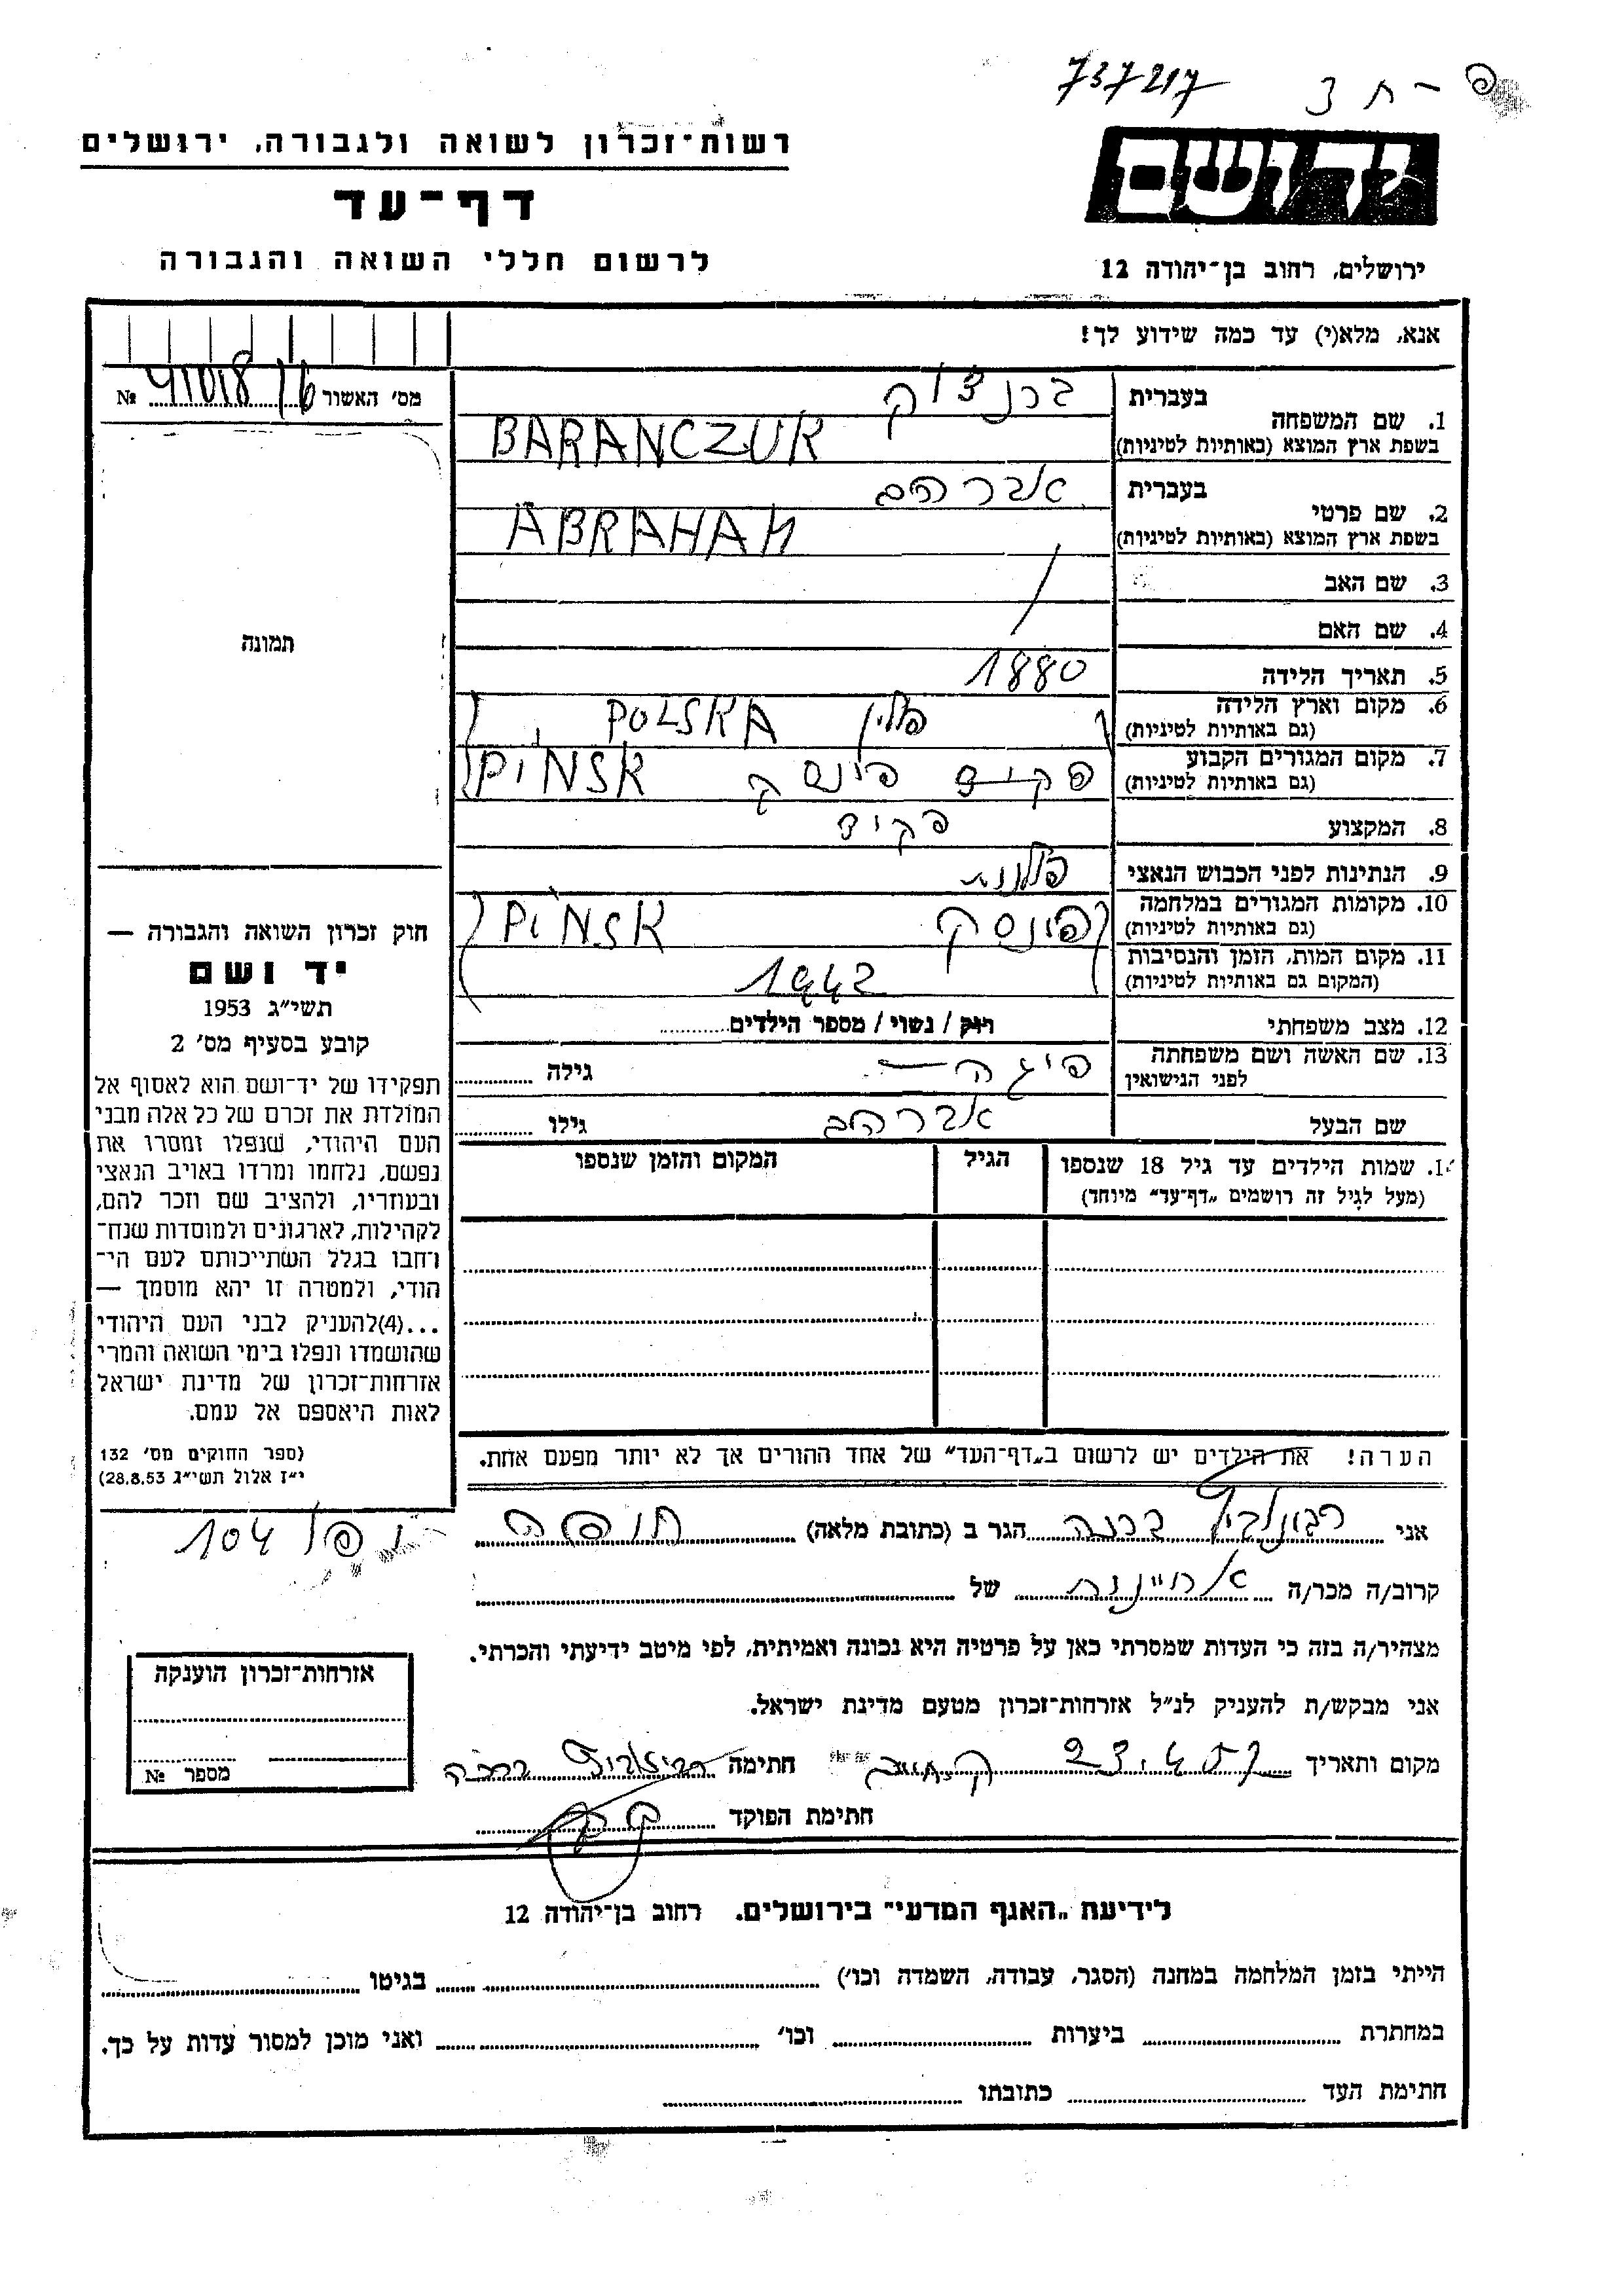 737217
רשות־זכרון לשואה ולגבורה, ירושלים
דף־עד
לרשום חללי השואה והגבורה
יד ושם
ירושלים, רחוב בן־יהודה 12
אנא, מלא(י) עד כמה שידוע לך!
מס׳ האשור 41018/6 №
1. שם המשפחה
בעברית ברנצוק
בשפת ארץ המוצא (באותיות לטיניות) BARANCZUK
2. שם פרטי
בעברית אברהם
בשפת ארץ המוצא (באותיות לטיניות) ABRAHAM
3. שם האב
4. שם האם
5. תאריך הלידה 1880
6. מקום וארץ הלידה
(גם באותיות לטיניות) פולין POLSKA
7. מקום המגורים הקבוע
(גם באותיות לטיניות) פקיד פינסק PINSK
8. המקצוע פקיד
9. הנתינות לפני הכבוש הנאצי פולנית
10. מקומות המגורים במלחמה
(גם באותיות לטיניות) פינסק PINSK
11. מקום המות, הזמן והנסיבות
(המקום גם באותיות לטיניות) 1942
12. מצב משפחתי רווק / נשוי / מספר הילדים
13. שם האשה ושם משפחתה
לפני הנישואין פיגה גילה
שם הבעל אברהם גילו
14. שמות הילדים עד גיל 18 שנספו
(מעל לגיל זה רושמים „דף־עד״ מיוחד)
הגיל
המקום והזמן שנספו
הערה! את הילדים יש לרשום ב„דף־העד״ של אחד ההורים אך לא יותר מפעם אחת.
תמונה
חוק זכרון השואה והגבורה —
יד ושם
תשי״ג 1953
קובע בסעיף מס׳ 2
תפקידו של יד־ושם הוא לאסוף אל
המולדת את זכרם של כל אלה מבני
העם היהודי, שנפלו ומסרו את
נפשם, נלחמו ומרדו באויב הנאצי
ובעוזריו, ולהציב שם וזכר להם,
לקהילות, לארגונים ולמוסדות שנח־
רחבו בגלל השתייכותם לעם הי־
הודי, ולמטרה זו יהא מוסמך —
...(4)להעניק לבני העם היהודי
שהושמדו ונפלו בימי השואה והמרי
אזרחות־זכרון של מדינת ישראל
לאות היאספם אל עמם.
(ספר החוקים מס׳ 132
י״ז אלול תשי״ג 28.8.53)
104
אני ברכה הגר ב (כתובת מלאה)
קרוב/ה מכר/ה של
מצהיר/ה בזה כי העדות שמסרתי כאן על פרטיה היא נכונה ואמיתית, לפי מיטב ידיעתי והכרתי.
אני מבקש/ת להעניק לנ״ל אזרחות־זכרון מטעם מדינת ישראל.
מקום ותאריך 23.4.57 חתימה ברכה
חתימת הפוקד
אזרחות־זכרון הוענקה
מספר №
לידיעת „האגף המדעי״ בירושלים, רחוב בן־יהודה 12
הייתי בזמן המלחמה במחנה (הסגר, עבודה, השמדה וכו׳) בגיטו
במחתרת ביערות וכו׳ ואני מוכן למסור עדות על כך.
חתימת העד כתובתו